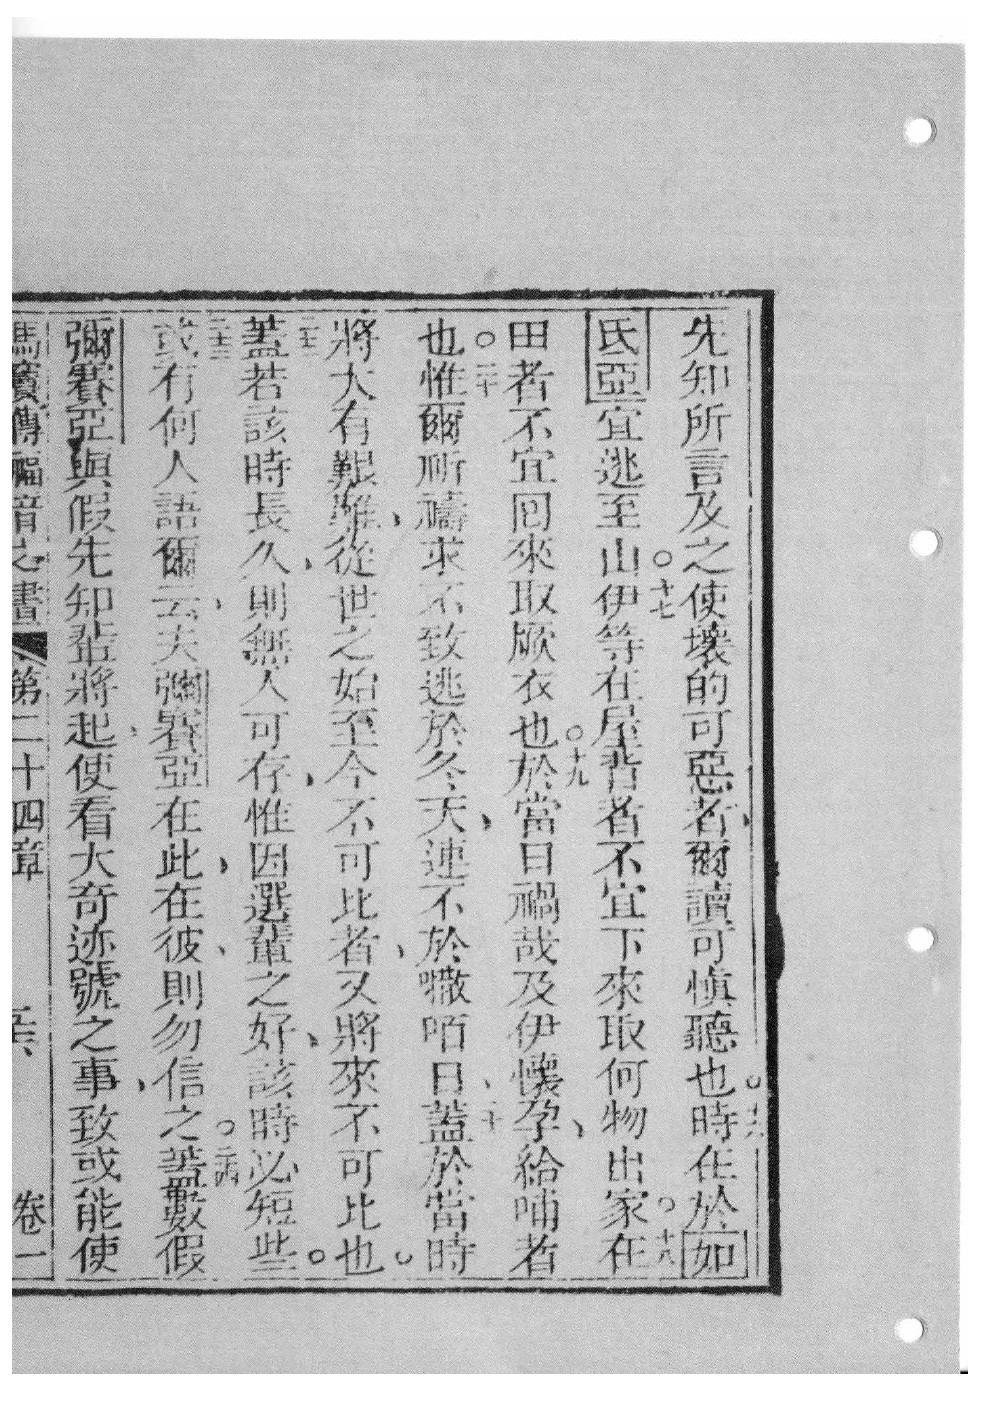 先知所言及之使壞的可惡者爾讀可慎聽也十六時在於如
氏亞宜逃至山十七伊等在屋背者不宜下來取何物出家十八在
田者不宜回來取厥衣也十九於當日禍哉及伊懷孕給哺者
也二十惟爾祈禱求不致逃於冬天連不於𠸿咟日蓋於當時
將大有艱難從世之始至今不可比者又將來不可比也
二十二蓋若該時長久則無人可存惟因選輩之好該時必短些
二十三或有何人語爾云夫彌賽亞在此在彼則勿信之二十四蓋數假
彌賽亞與假先知輩將起使看大奇迹號之事致或能使
馬竇傳福音之書 第二十四章 卷一